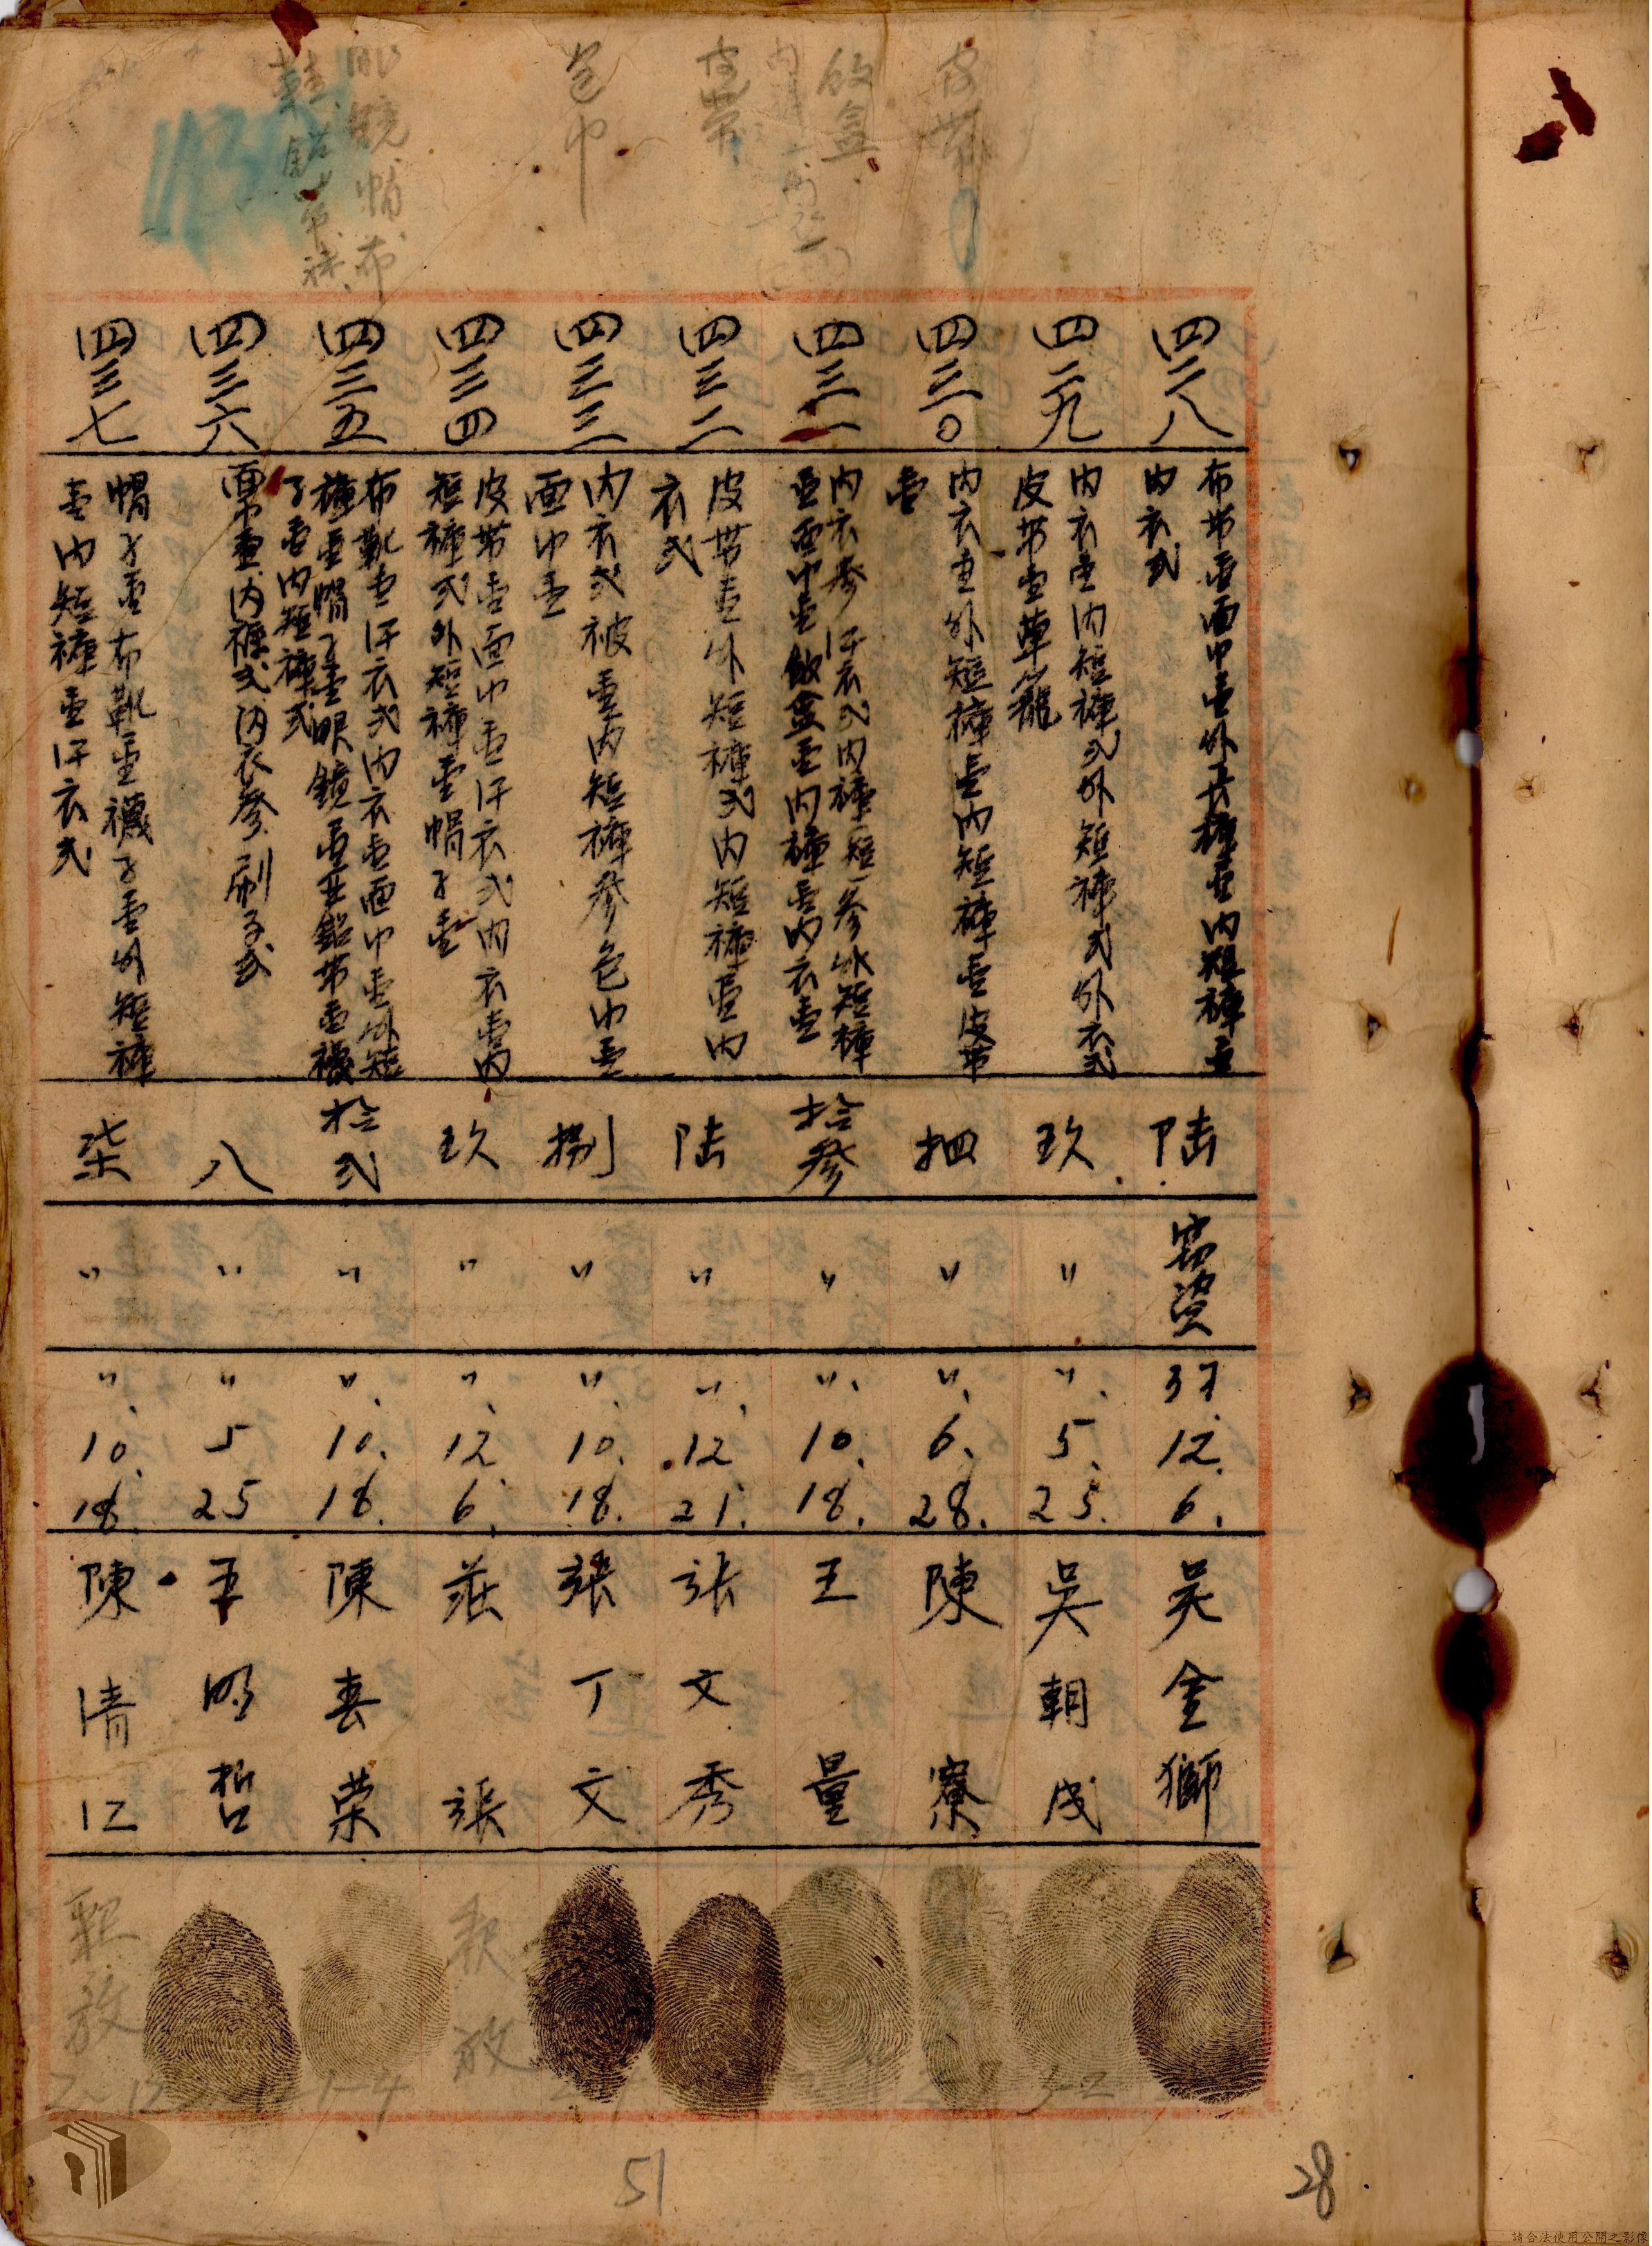 皮帶
飯盒
皮帶
包巾
眼鏡、帽、布
鞋、鉛帶、襪
四二八
布帶壹面巾壹外長褲壹內短褲壹
內衣弍
陸
竊盜
37.
12.
6.
吳金獅
四二九
內衣壹內短褲弍外短褲弍外衣弍
皮帶壹草籠
玖
〃
〃
5.
25.
吳朝成
四三〇
內衣壹外短褲壹內短褲壹皮帶
壹
肆
〃
〃
6.
28.
陳寮
四三一
內衣參汗衣弍內褲短參外短褲
壹面巾壹飯盒壹內褲壹內衣壹
拾參
〃
〃
10.
18.
王量
四三二
皮帶壹外短褲弍內短褲壹內
衣弍
陸
〃
〃
12
21.
張文秀
四三三
內衣弍被壹內短褲參包巾壹
面巾壹
捌
〃
〃
10.
18.
張丁文
四三四
皮帶壹面巾壹汗衣弍內衣壹內
短褲弍外短褲壹帽子壹
玖
〃
〃
12
6.
莊張
釈放
四三五
布靴壹汗衣弍內衣壹面巾壹外短
褲壹帽子壹眼鏡壹亞鉛帶壹襪
子壹內短褲弍
拾弍
〃
〃
10.
18.
陳春荣
1-4
四三六
票壹內褲弍內衣參刷子弍
八
〃
〃
5
25
王明哲
四三七
帽子壹布靴壹襪子壹外短褲
壹內短褲壹汗衣弍
柒
〃
〃
10.
18.
陳清江
釈放
51
28
請合法使用公開之影像